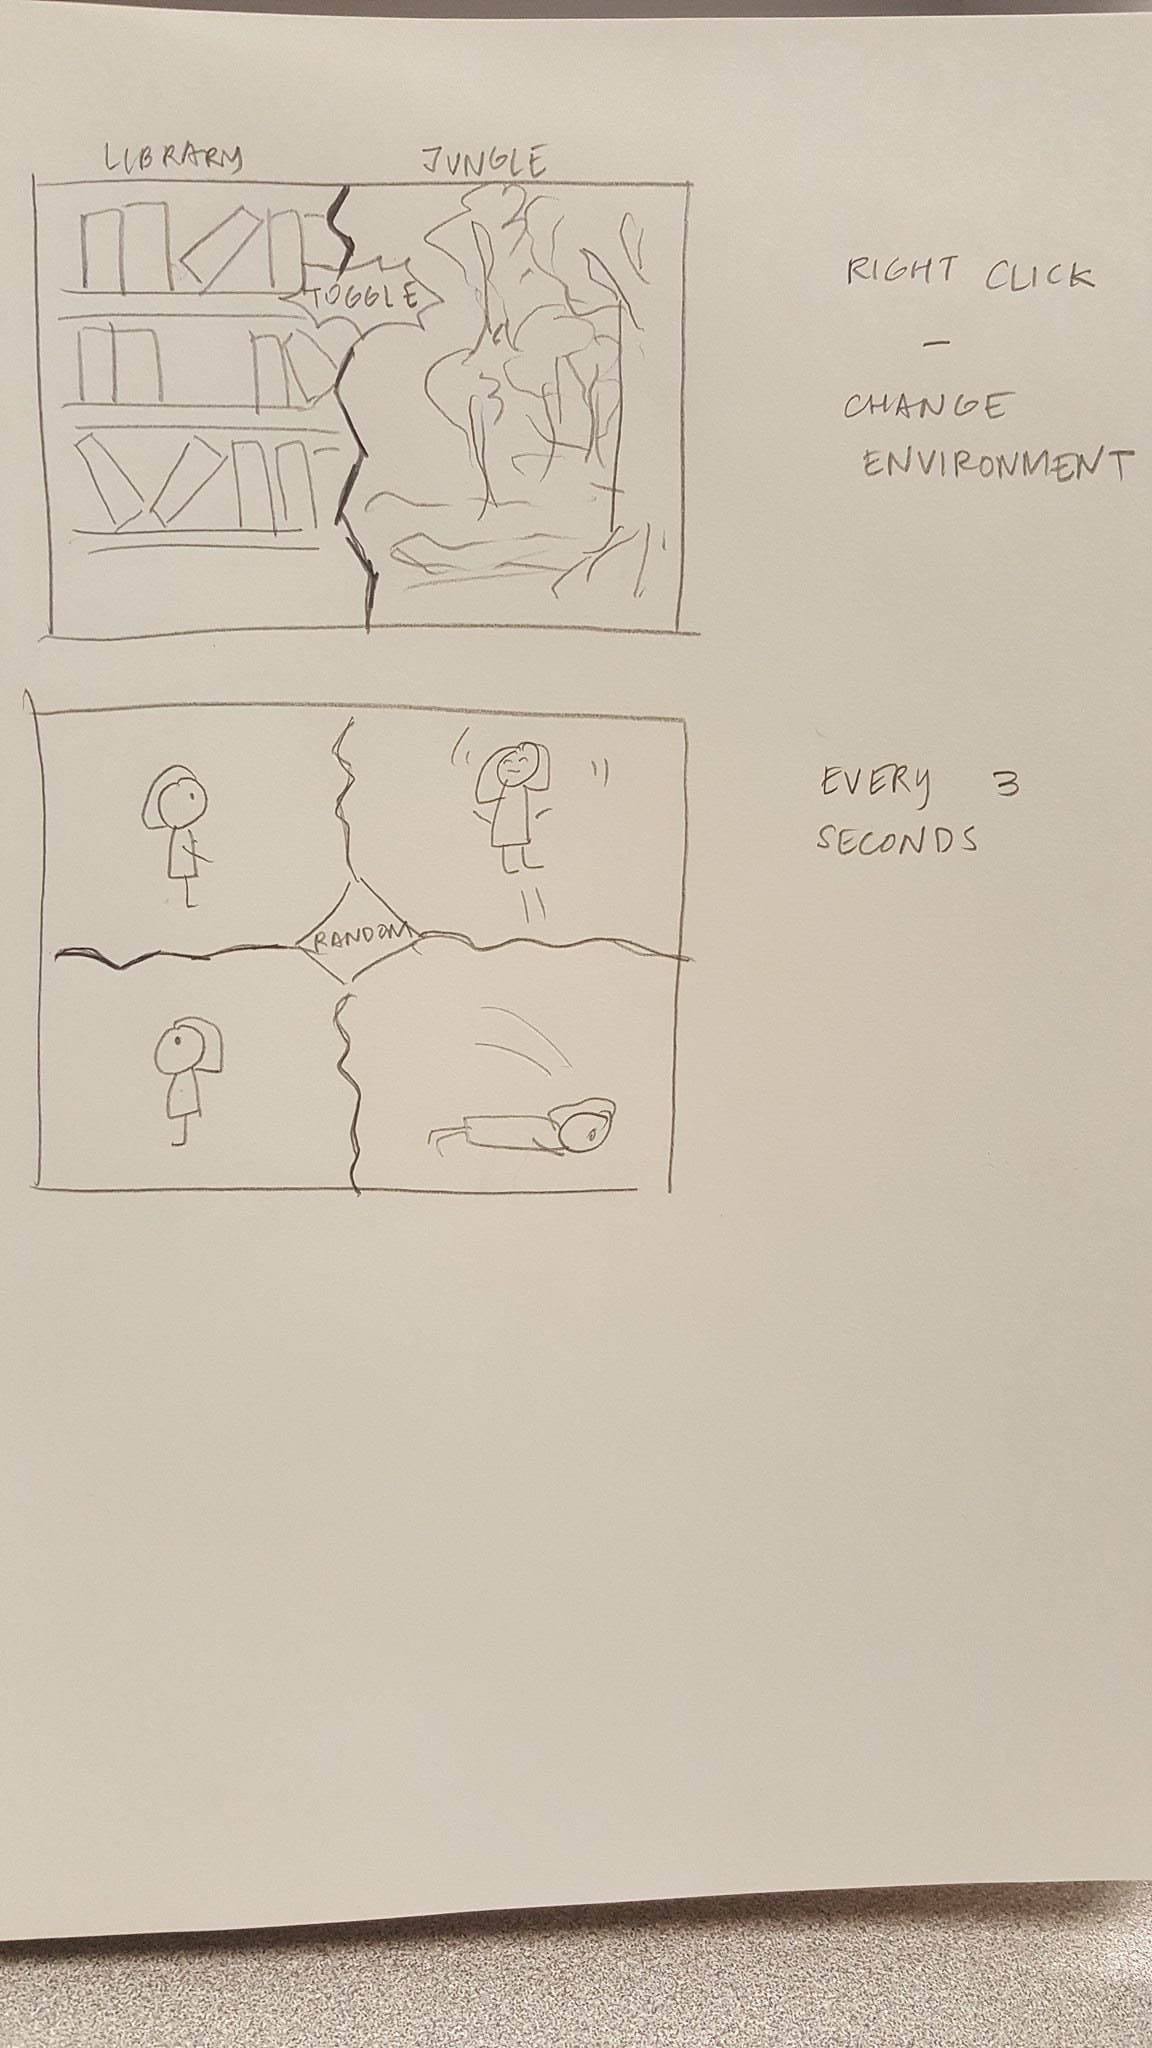 LIBRARY JUNGLE
TOGGLE
RIGHT CLICK
-
CHANGE
ENVIRONMENT
EVERY 3
SECONDS
RANDOM